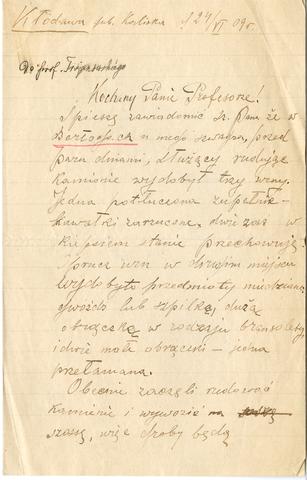 Kłodawa gub. Kaliska 124/VI 09 r.
Do Prof.
Kochany Panie Profesorze!
Spieszę zawiadomić Sz. Pana że w
u mego szwagra, przed
paru dniami, służący rudując
kamienie wydobył trzy urny.
Jedna potłuczona zupełnie
kawałki zarzucone, dwie zaś w
kiepskiem stanie przechowuję.
Oprucz urn w drugim miejscu
wydobyto przedmioty miedziane
gwoźdź lub szpilkę, dużą
obrączkę w rodzaju bransolety,
i dwie małe obrączki – jedna
przełamana.
Obecnie zaczęli rudować
kamienie i wywozić na
szosę, więc groby będą